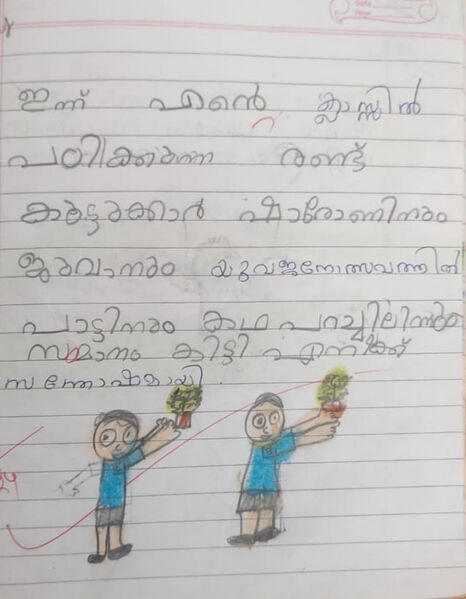 ഇന്ന് എന്റെ ക്ലാസ്സിൽ
പഠിക്കുന്ന രണ്ട്
കൂട്ടുക്കാർ ഷാരോണിനും
ജുവാനും യുവജനോത്സവത്തിൽ
പാട്ടിനും കഥ പറച്ചിലിനും
സമ്മാനം കിട്ടി എനിക്ക്
സന്തോഷമായി.